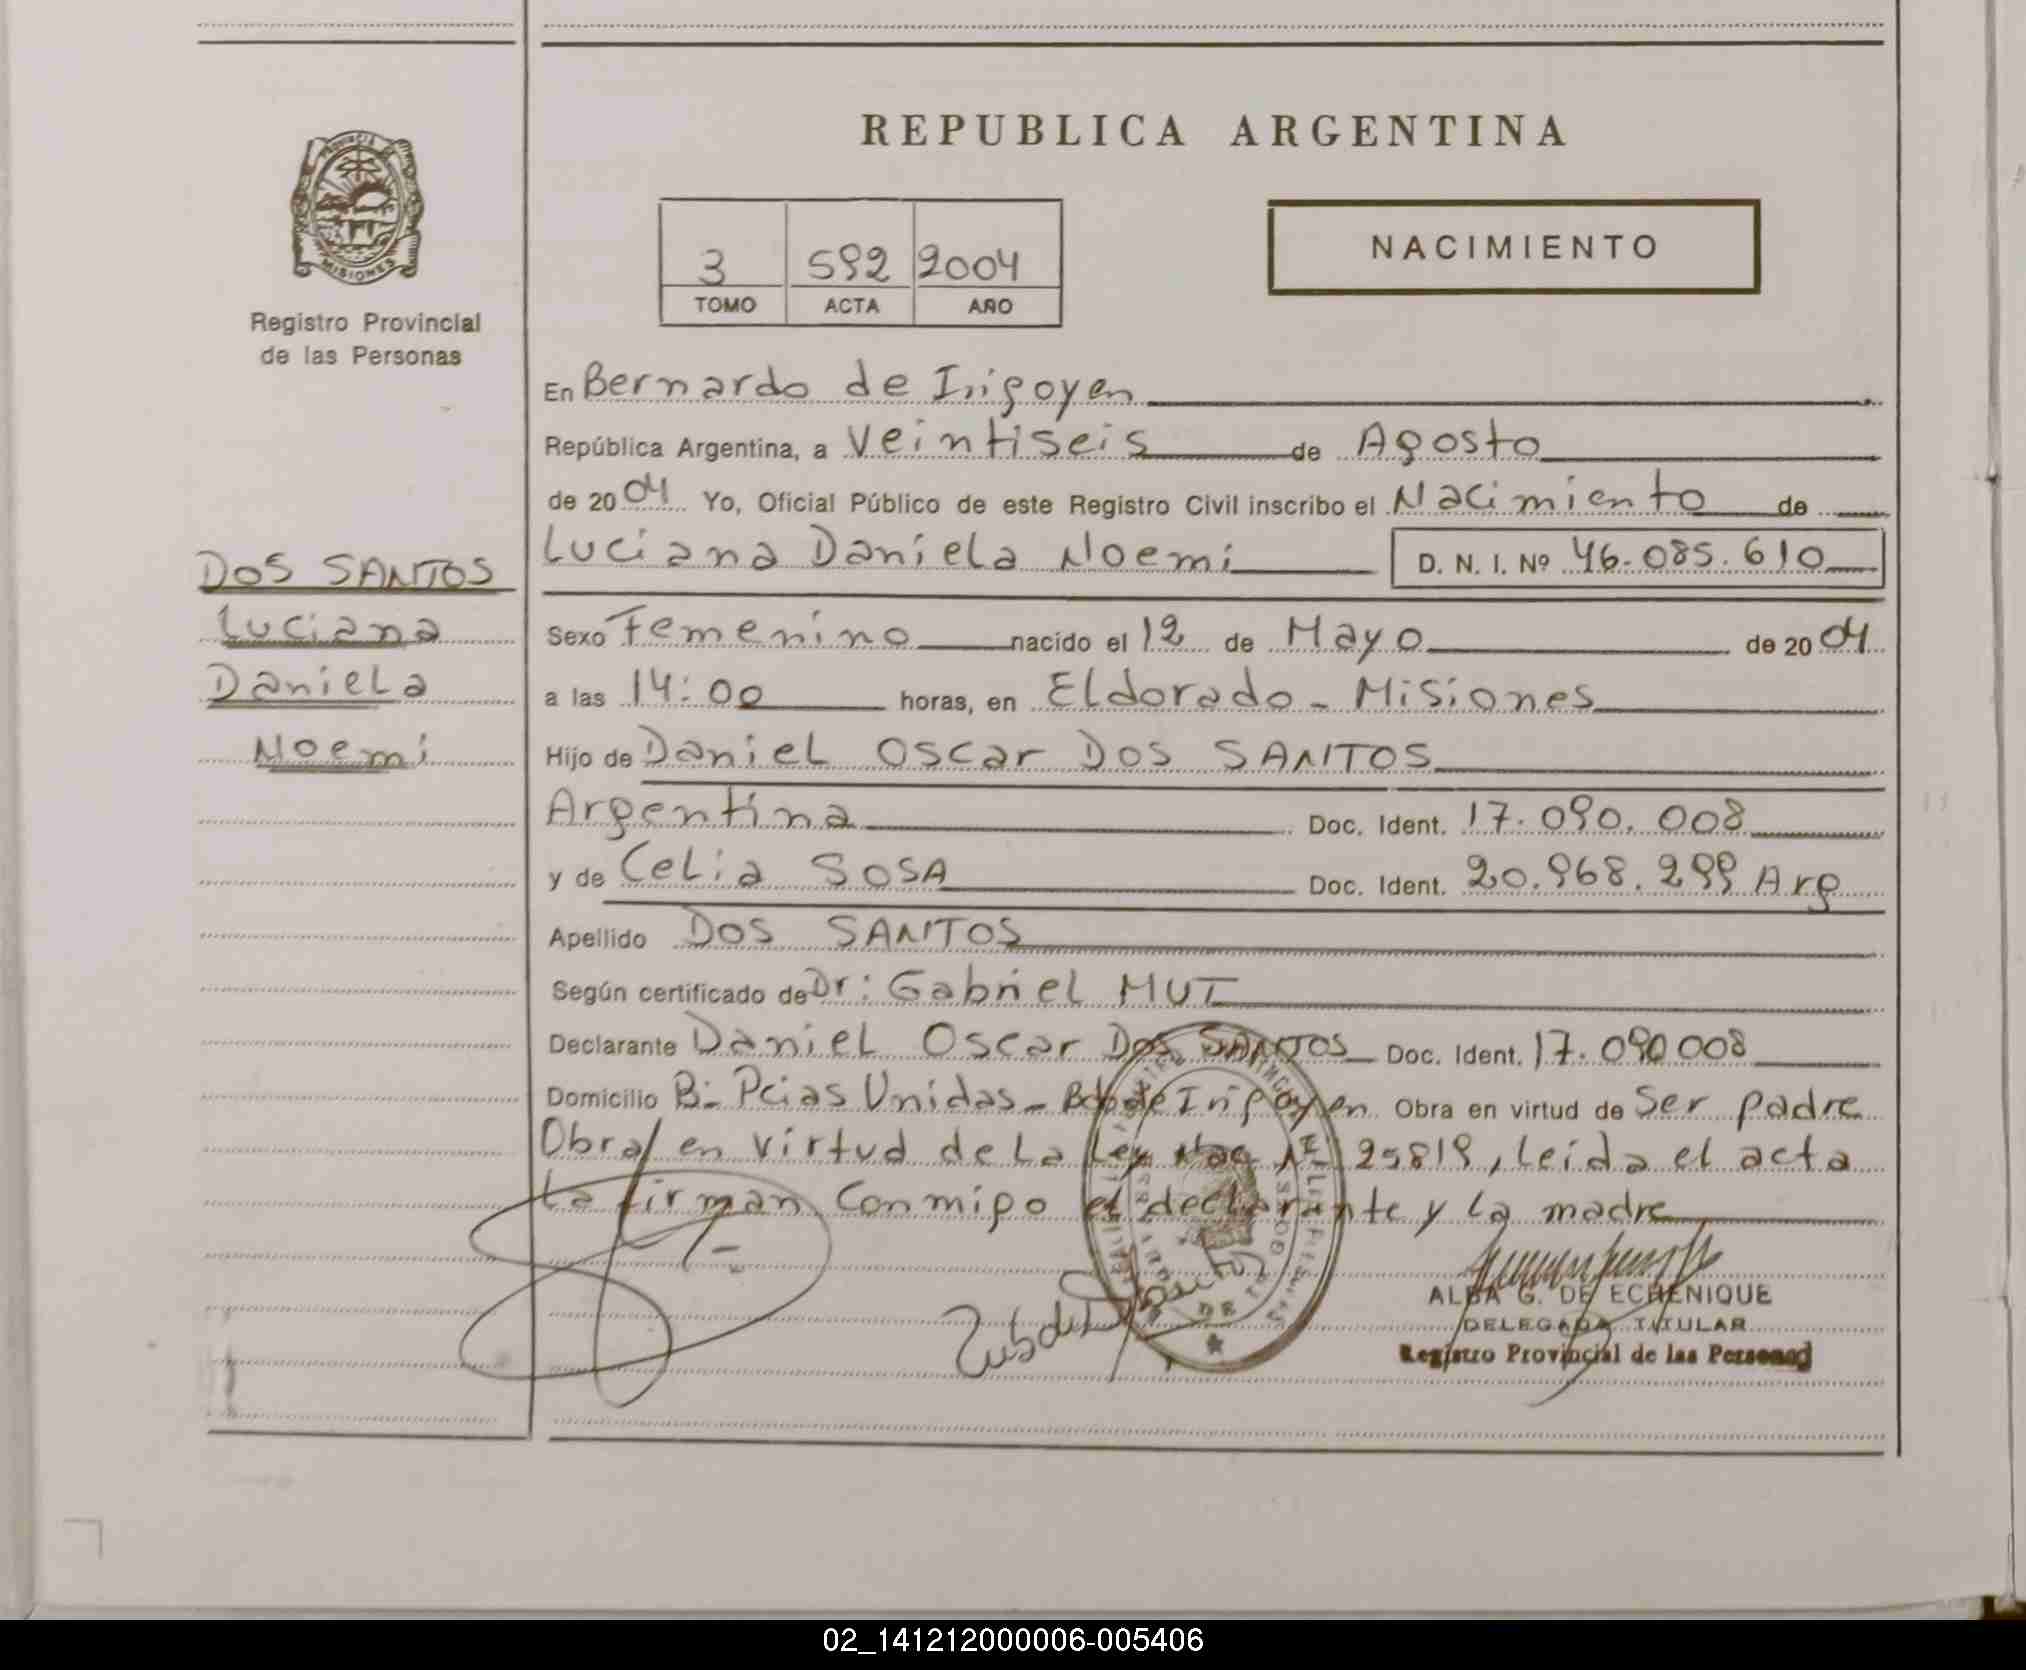 REPUBLICA ARGENTINA
PROVINCIA DE
MISIONES
Registro Provincial
de las Personas
3 592 2004
TOMO ACTA AÑO
NACIMIENTO
En Bernardo de Irigoyen
República Argentina, a Veintiseis de Agosto
de 2004 Yo, Oficial Público de este Registro Civil inscribo el Nacimiento de
Luciana Daniela Noemi D. N. I. Nº 46.085.610
DOS SANTOS
Luciana
Daniela
Noemi
Sexo Femenino nacido el 12 de Mayo de 2004
a las 14:00 horas, en Eldorado - Misiones
Hijo de Daniel Oscar DOS SANTOS
Argentina Doc. Ident. 17.090.008
y de Celia SOSA Doc. Ident. 20.968.299 Arg
Apellido DOS SANTOS
Según certificado de Dr: Gabriel MUT
Declarante Daniel Oscar DOS SANTOS Doc. Ident. 17.090008
Domicilio B: Pcias Unidas - Bdo de Irigoyen Obra en virtud de Ser padre
Obra en virtud de La Ley Nac Nº 25819, Leida el acta
La firman Conmigo el declarante y La madre
ALBA G. DE ECHENIQUE
DELEGADA TITULAR
Registro Provincial de las Personas
02_141212000006-005406